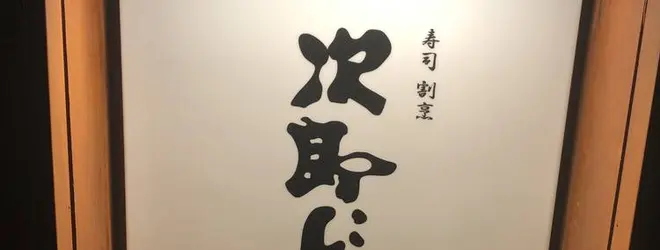 寿司 割烹
次郎